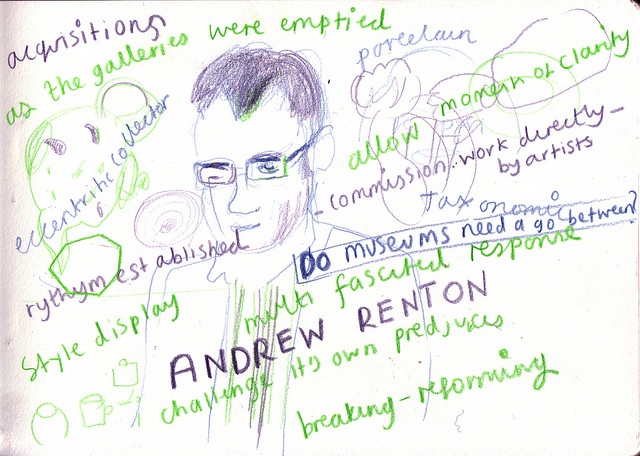 acquisitions
as the galleries were emptied
porcelain
allow moment of clarity
eccentritic collector
- commission.. work directly -
by artists
taxonomic
rythym established
Do museums need a go between?
multi fascited response
Style display
ANDREW RENTON
challenge it's own predjuices
breaking - reforming